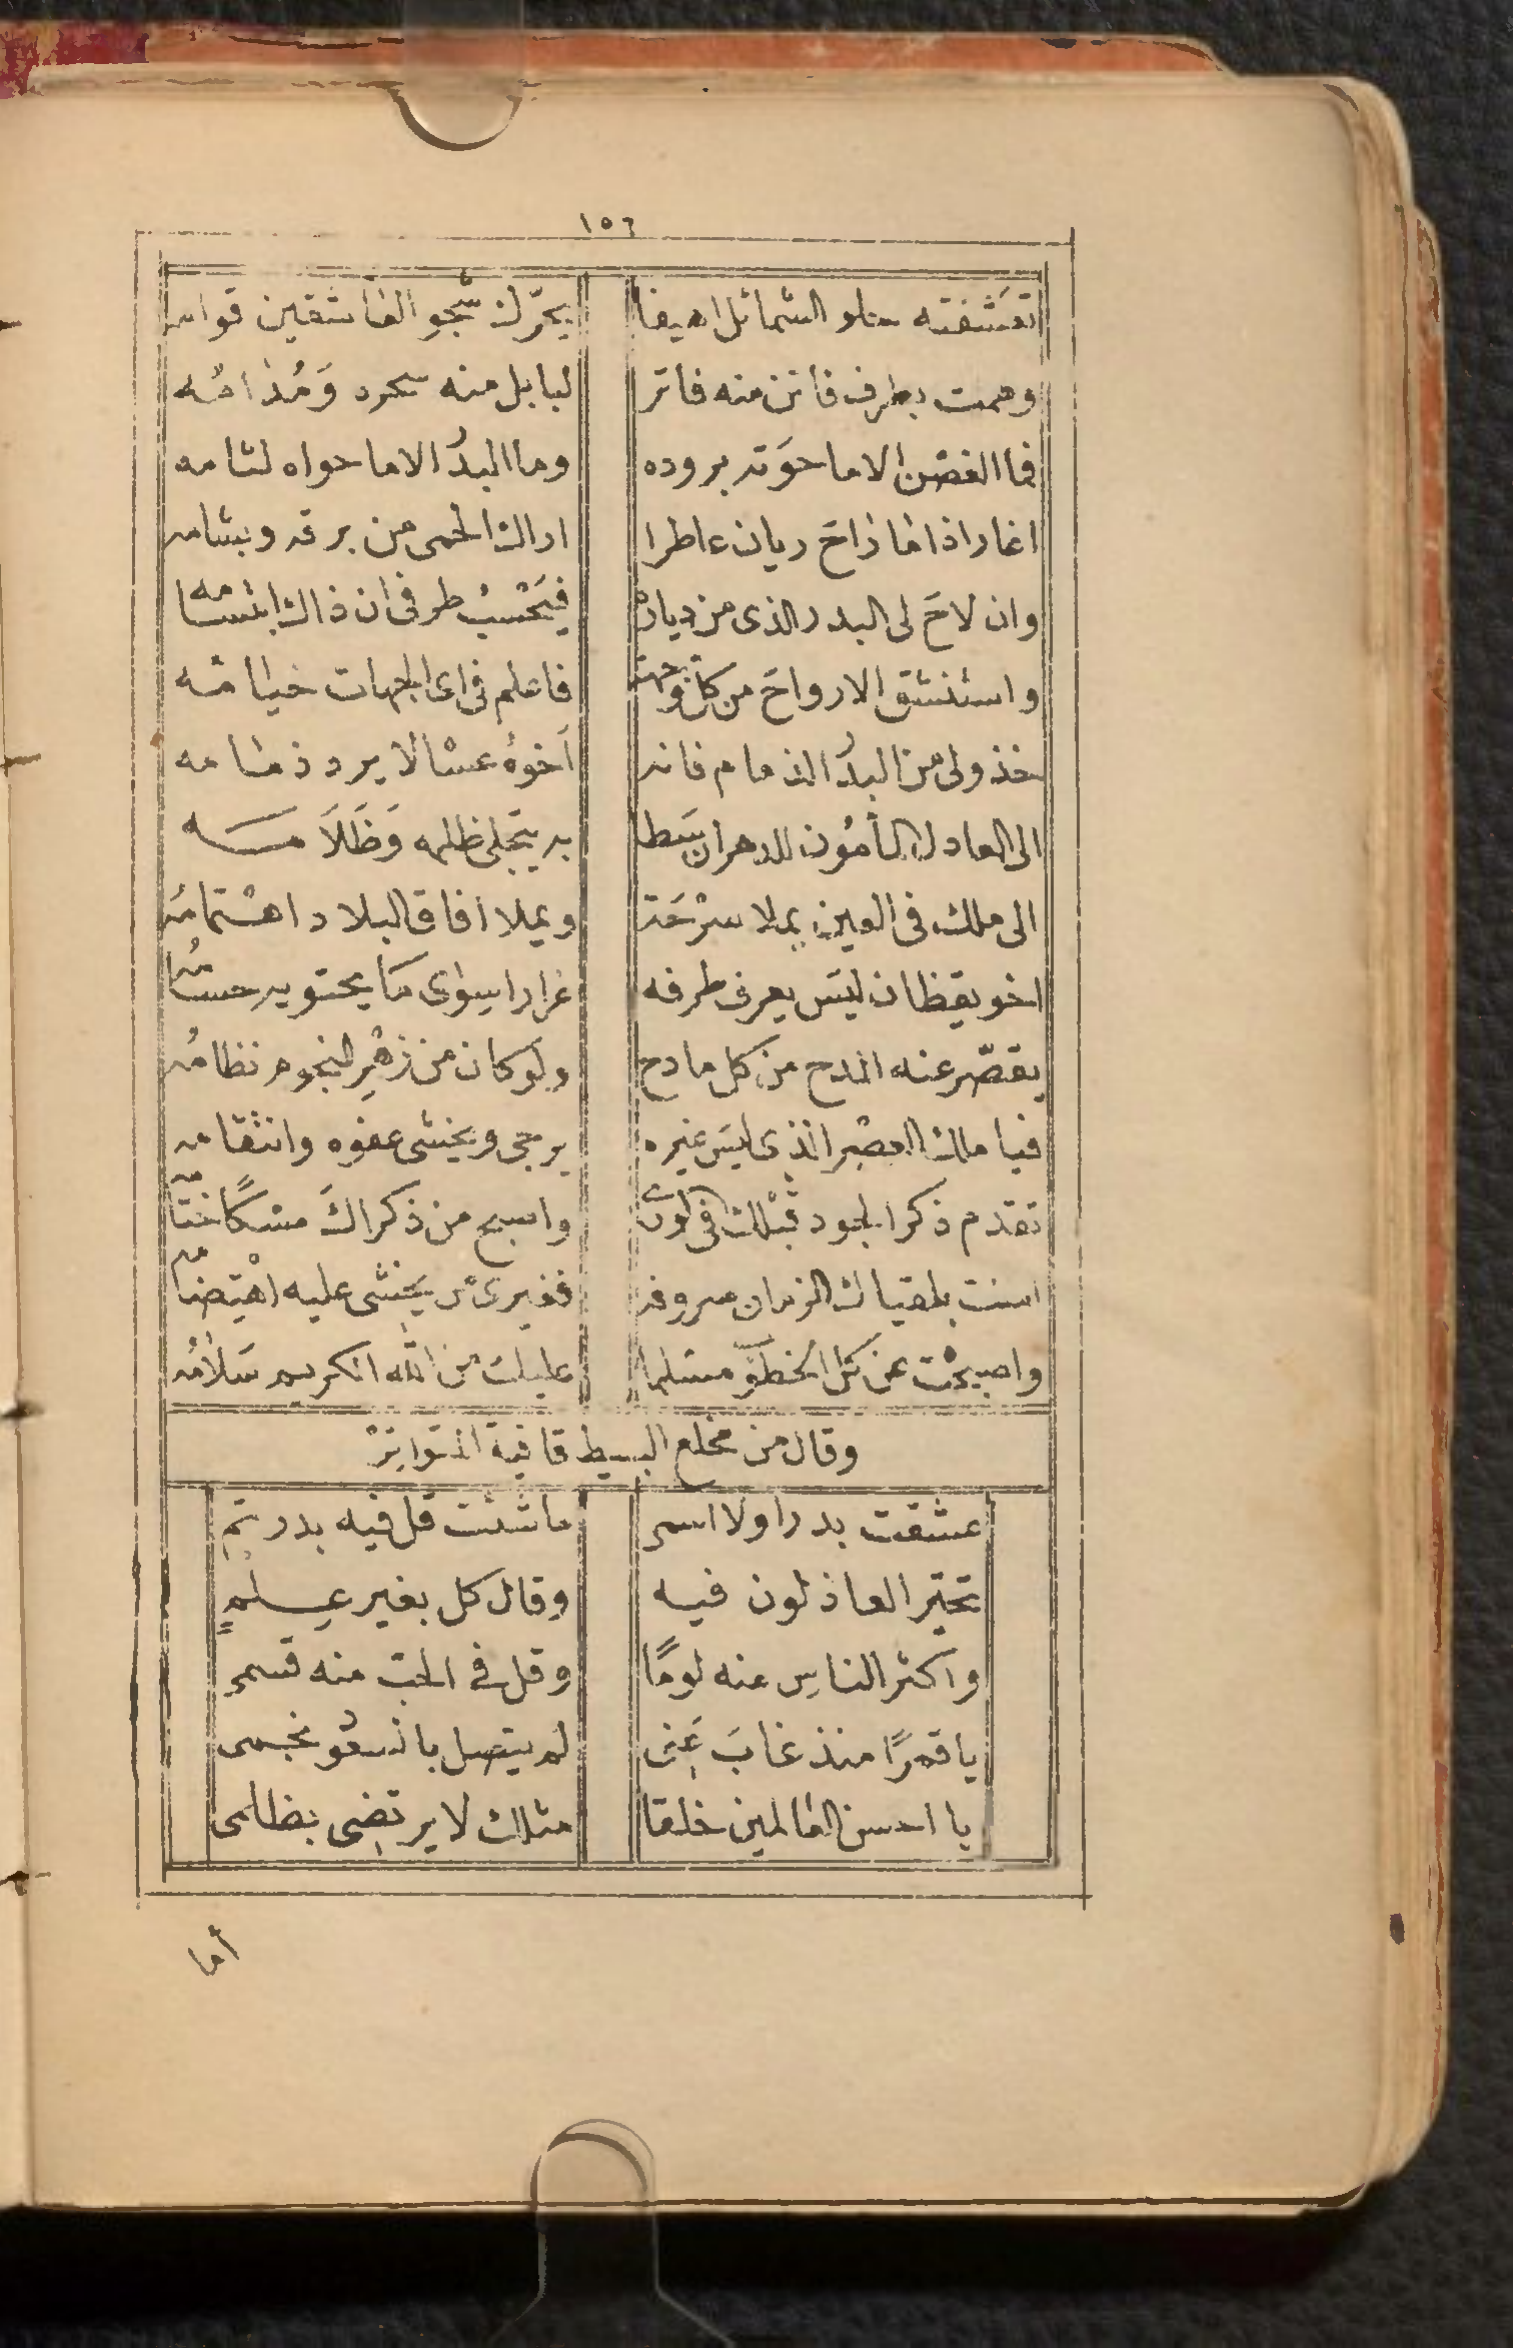 ١٥٦
تعَشقته حلو الشمائل اهيفا يحرّك شجو العاشقين قوامه
وهمت بطرف فاتن منه فاتر لبابل منه سحره وَمُدامُه
فما الغصْن الا ما حوَته بروده وما البدرُ الا ما حواه لثامه
اغار اذا ما راحَ ريان عاطرا اراك الحمى من برقه وبشامه
وان لاحَ لى البدر الذى من ديارهْ فيَحْسبُ طرفى ان ذاك ابتسامه
واستنشق الارواحَ من كل وجهة فاعلم فى اى الجهات خيامه
خذ ولى من البدرُ الذمام فانه أخوهُ عسْا لا يرد ذمامه
الى العادل المأمُون للدهر ان سَطا به يتجلى ظلمه وَظَلَامه
الى ملك فى العين يملا سرْحَة ويملا افاق البلاد اهْتمامُه
اخو يقظات ليسَ يعرف طرفه غرارا سوٰى مَا يحتويه حسَامُه
يقصّر عنه المدح من كل مادح ولَو كان من زهْرِ النجوم نظامُه
فيا ملك العصْر الذى ليسَ غيره يرجى ويخشى عفوه وانتقامه
تقدم ذكر الجود قَبْلك فى الورى واصبح من ذكراكَ مسْكًا ختَامه
امنت بلقياك الزمان صروفه فغيرى مَن يَخشى عليه اهْتضَامه
واصبحْت عن كل الخطوب مسَلما عليك من الله الكريم سَلامُه
وقال من مخلع البسيط قافية المتواترْ
عشقت بدرا ولا اسمى ما شئت قل فيه بدر تمِ
تحيّر العاذلون فيه وقال كل بغير عِلْمٍ
واكثر الناسِ عنه لومًا وقل فى الحب منه قسمى
يا قمرًا منذ غابَ عَنِى لم يتصل بالسعُود نجمى
يا احسن العالمين خلقا مثلك لا يرتضِى بظلمى
أما